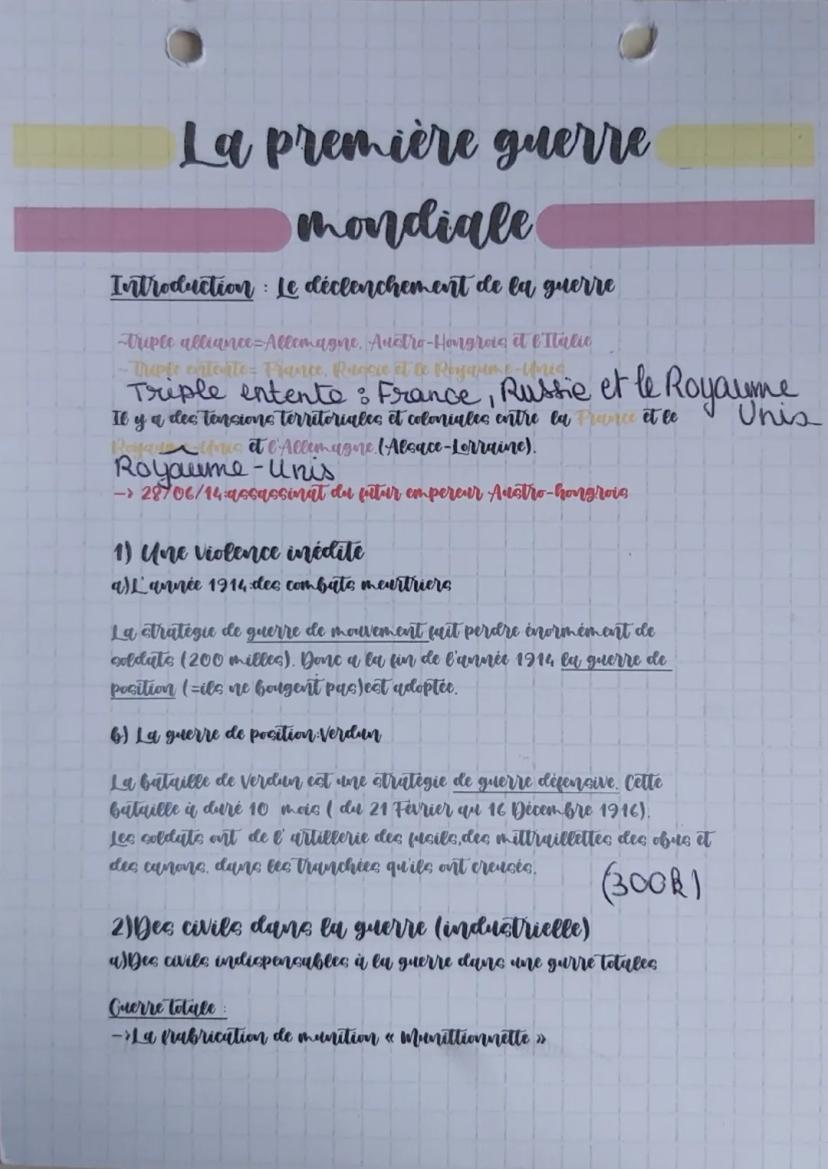 La première guerre
mondiale
Introduction : Le déclenchement de la guerre
-triple alliance=Allemagne, Austro-Hongrois et l'Italie
-Triple entente= France, Russie et le Royaume-Unis
Triple entente : France, Russie et le Royaume
Unis
Il y a des tensions territoriales et coloniales entre la France et le
Royaume-Unis et l'Allemagne.(Alsace-Lorraine).
Royaume-Unis
-> 28/06/14:assassinat du futur empereur Austro-hongrois
1) Une violence inédite
a)L'année 1914:des combats meurtriers
La stratégie de guerre de mouvement fait perdre énormément de
soldats (200 milles). Donc a la fin de l'année 1914 la guerre de
position (=ils ne bougent pas)est adoptée.
b) La guerre de position:Verdun
La bataille de Verdun est une stratégie de guerre défensive. Cette
bataille à duré 10 mois ( du 21 Février au 16 Décembre 1916).
Les soldats ont de l' artillerie des fusils,des mittraillettes des obus et
des canons. dans les tranchées qu'ils ont creusés.
(300k)
2)Des civils dans la guerre (industrielle)
a)Des civils indispensables à la guerre dans une gurre totales
Guerre totale :
->La frabrication de munition « Munittionnette »